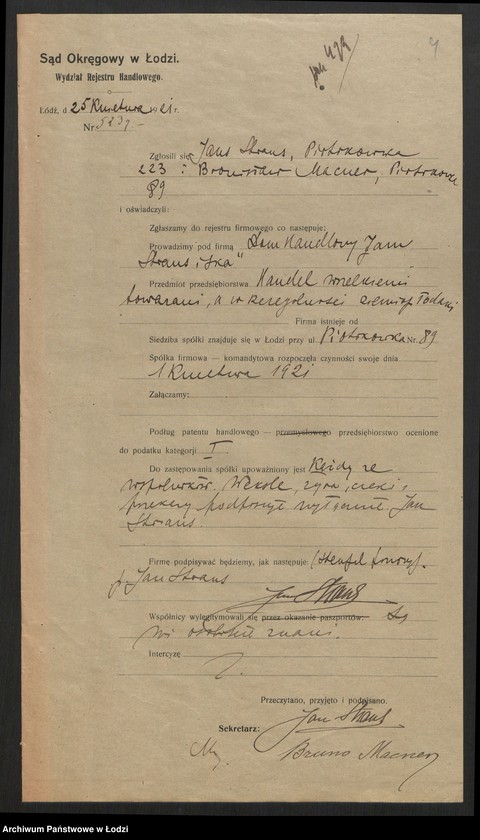 4
Sąd Okręgowy w Łodzi.
Wydział Rejestru Handlowego.
Łódź, d 25 Kwietnia 1921 r.
Nr. 5239.-
Zgłosili się Jan Straus, Piotrkowska
223 i Bronisław Macner, Piotrkowska
89
i oświadczyli:
Zgłaszamy do rejestru firmowego co następuje:
Prowadzimy pod firmą „Dom Handlowy Jan
Straus i S-ka"
Przedmiot przedsiębiorstwa Handel wszelkiemi
towarami, a w szczególności
Firma istnieje od
Siedziba spółki znajduje się w Łodzi przy ul. Piotrkowska Nr. 89
Spółka firmowa — komandytowa rozpoczęła czynności swoje dnia
1 Kwietnia 1921
Załączamy:
Podług patentu handlowego — przemysłowego przedsiębiorstwo ocenione
do podatku kategorji I
Do zastępowania spółki upoważniony jest Każdy ze
wspólników. Weksle, żyra, czeki i
przekazy podpisuje wyłącznie Jan
Straus.
Firmę podpisywać będziemy, jak następuje: (stempel firmowy).
Jan Straus
Jan Straus
Wspólnicy wylegitymowali się przez okazanie paszportów. Są
mi osobiście znani.
Intercyzę
Przeczytano, przyjęto i podpisano.
Jan Straus
Sekretarz:
Bruno Macner
Archiwum Państwowe w Łodzi